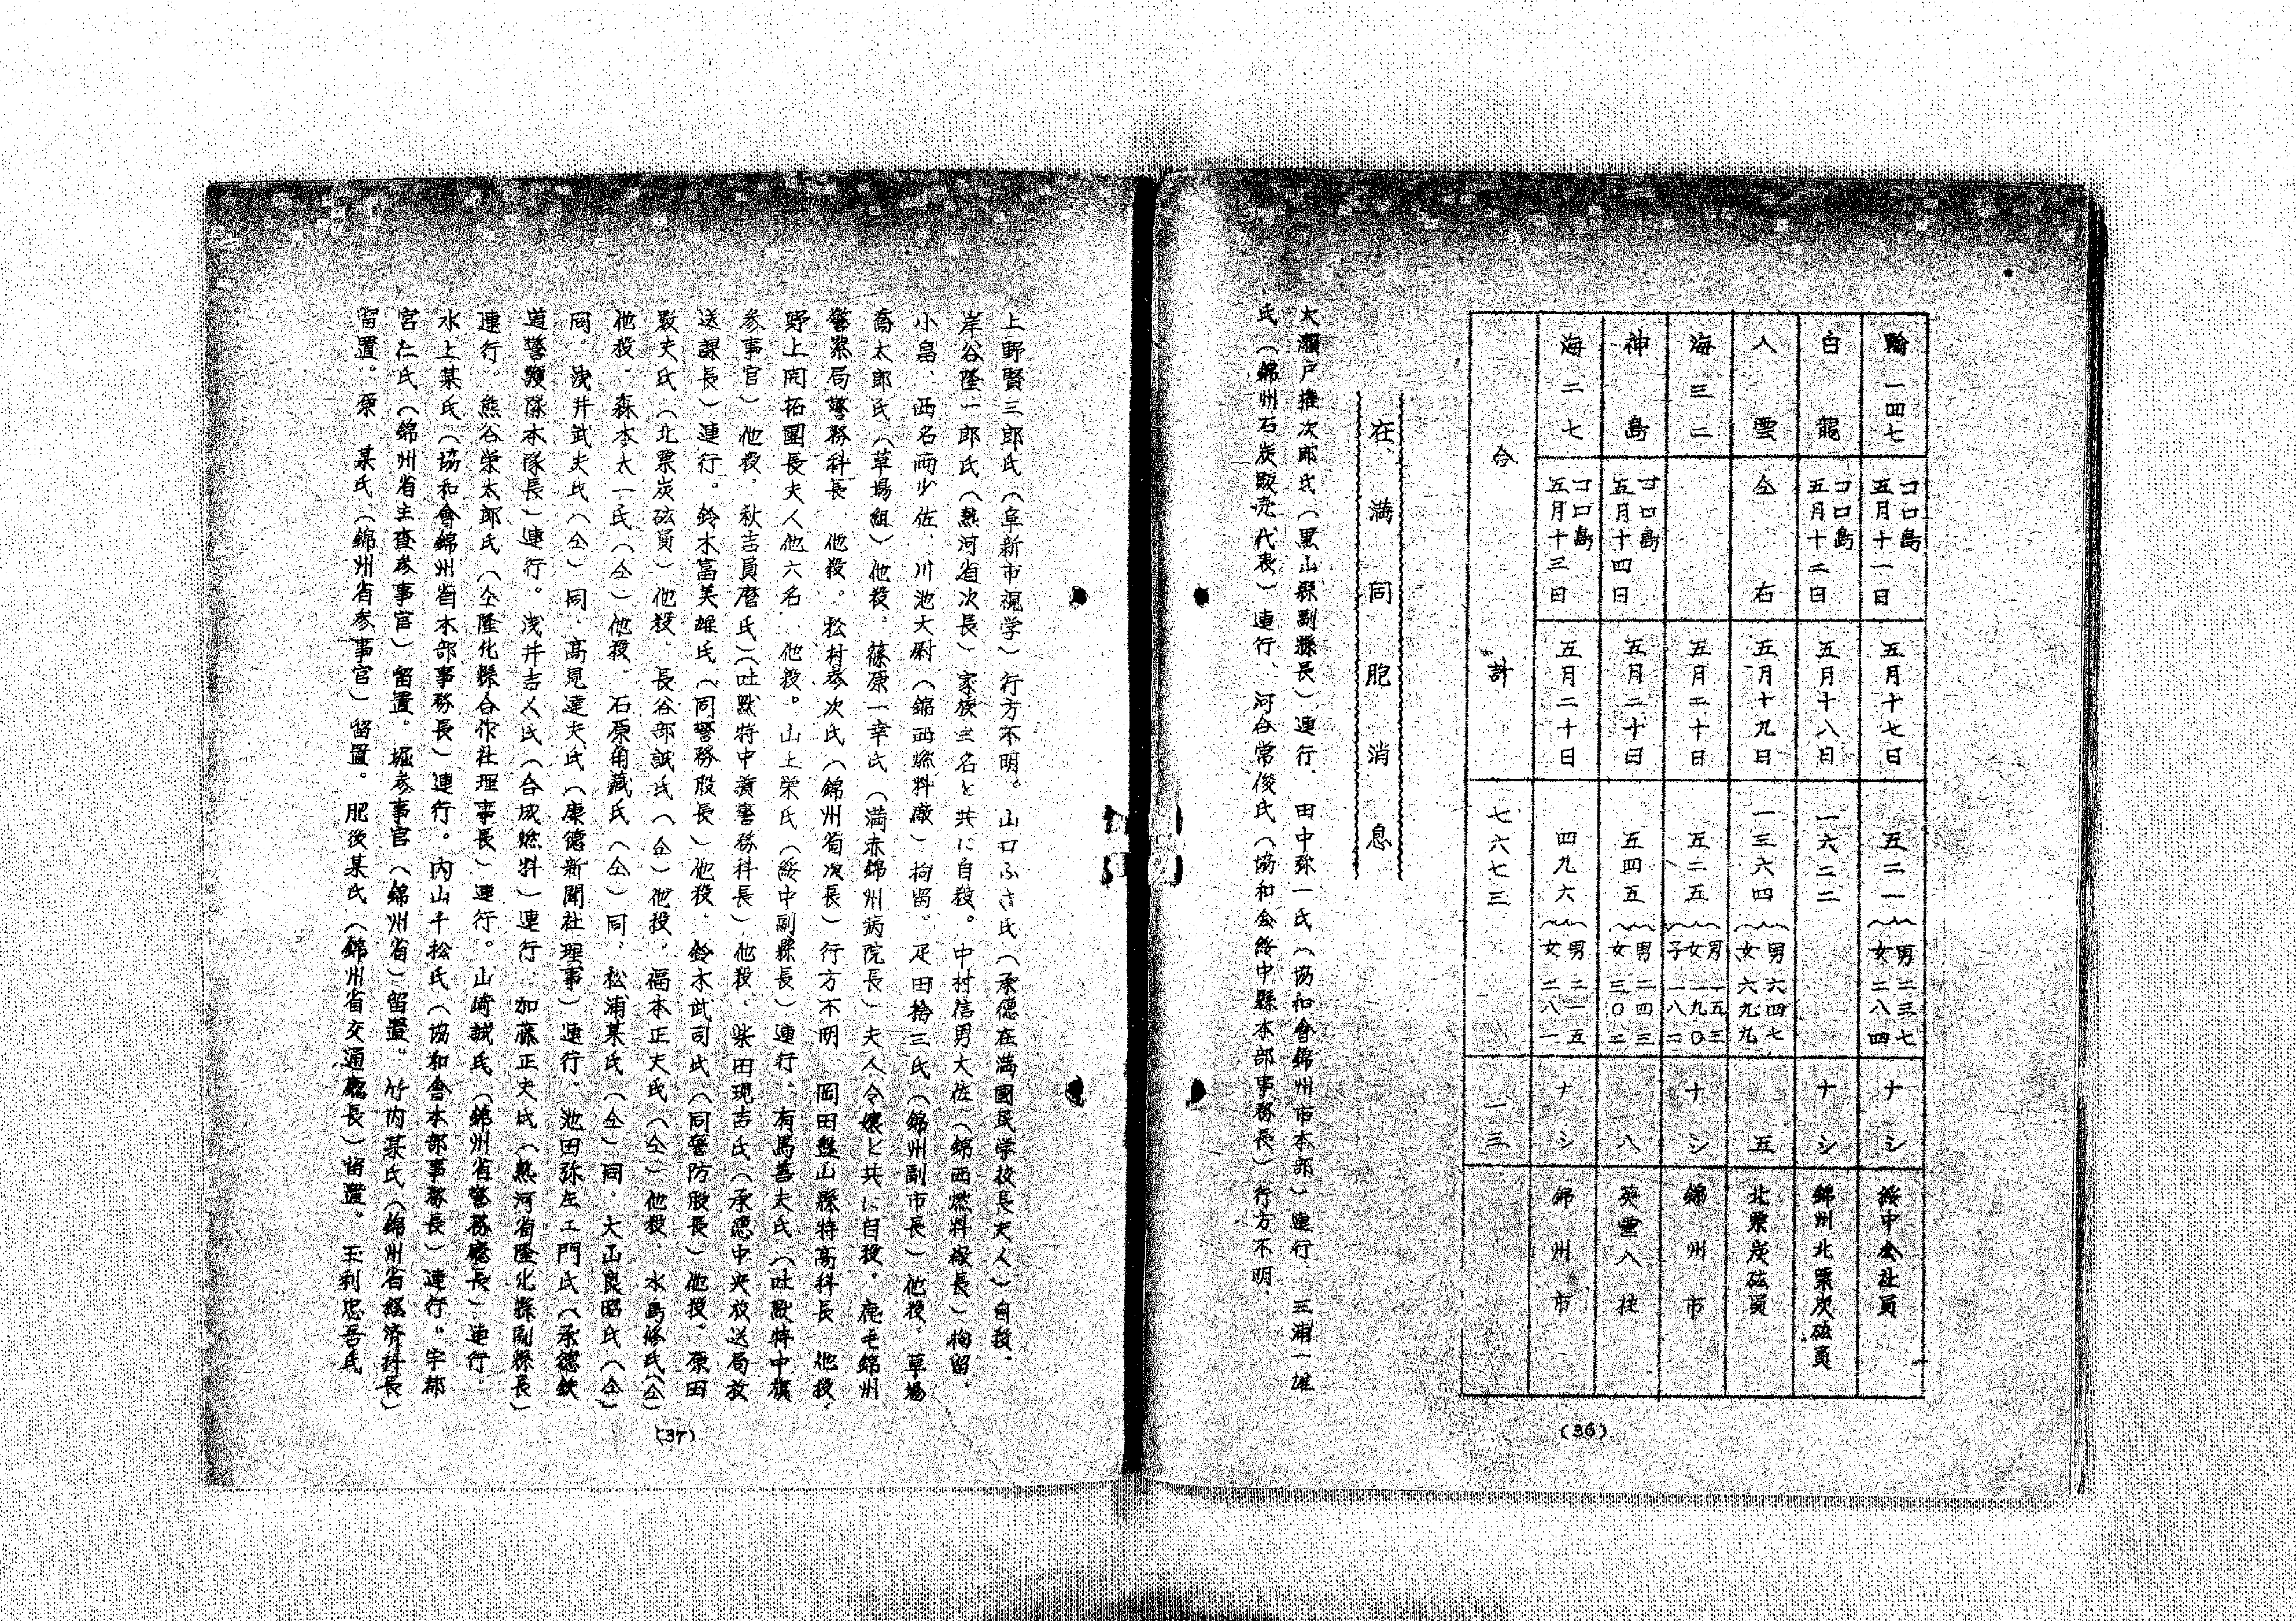 輸一四七 コロ島五月十一日 五月十七日 五二一(男二三七 女二八四) ナシ 綏中会社員
白龍 コロ島五月十二日 五月十八日 一六二二 ナシ 錦州北票炭砿員
八雲 仝右 五月十九日 一三六四(男六四七 女六九九) 五 北票炭砿員
海三二 五月二十日 五二五(男一五三 女一九〇 子一八二) ナシ 錦州市
神島 コロ島五月十四日 五月二十日 五四五(男二四三 女三〇二) 八
海二七 コロ島五月十三日 五月二十日 四九六(男二一五 女二八一) ナシ 錦州市
合計 七六七三 一三
在満同胞消息
大瀬戸権次郎氏(黒山縣副縣長)連行、田中弥一氏(協和會錦州市本部)連行 三浦一雄
氏(錦州石炭販売代表)連行、河合常俊氏(協和会綏中縣本部事務長)行方不明、
(36)
上野賢三郎氏(阜新市視学)行方不明。山口ふさ氏(承德在満國民学校長夫人)自殺。
岸谷隆一郎氏(熱河省次長)家族三名と共に自殺。中村信男大佐(錦西燃料廠長)拘留、
小畠、西名両少佐、川池大尉(錦西燃料廠)拘留、疋田拾三氏(錦州副市長)他殺、草場
斎太郎氏(草場組)他殺、篠原一幸氏(満赤錦州病院長)夫人令嬢と共に自殺。鹿毛錦州
警察局警務科長、他殺。松村泰次氏(錦州省次長)行方不明 岡田盤山縣特高科長 他殺、
野上開拓團長夫人他六名、他殺。山上栄氏(綏中副縣長)連行。有馬善太氏(吐默特中旗
参事官)他殺、秋吉員麿氏(吐默特中旗警務科長)他殺、柴田現吉氏(承德中央放送局放
送課長)連行。鈴木富美雄氏(同警務股長)他殺、鈴木武司氏(同警防股長)他殺、原田
数夫氏(北票炭砿員)他殺、長谷部誠氏(仝)他殺、福本正夫氏(仝)他殺、水島修氏(仝)
他殺、森本太一氏(仝)他殺、石原角藏氏(仝)同、松浦某氏(仝)同、大山良昭氏(仝)
同、浅井武夫氏(仝)同、高見達夫氏(康德新聞社理事)連行、池田弥左エ門氏(承德鉄
道警護隊本隊長)連行。浅井吉人氏(合成燃料)連行、加藤正夫氏(熱河省隆化縣副縣長)
連行。熊谷栄太郎氏(仝隆化縣合作社理事長)連行。山崎誠氏(錦州省警務廳長)連行、
水上某氏(協和會錦州省本部事務長)連行。内山千松氏(協和會本部事務長)連行。宇都
宮仁氏(錦州省主査参事官)留置。堀参事官(錦州省)留置。竹内某氏(錦州省経済科長)
留置。原 某氏(錦州省参事官)留置。肥後某氏(錦州省交通廳長)留置。王利忠吾氏
(37)